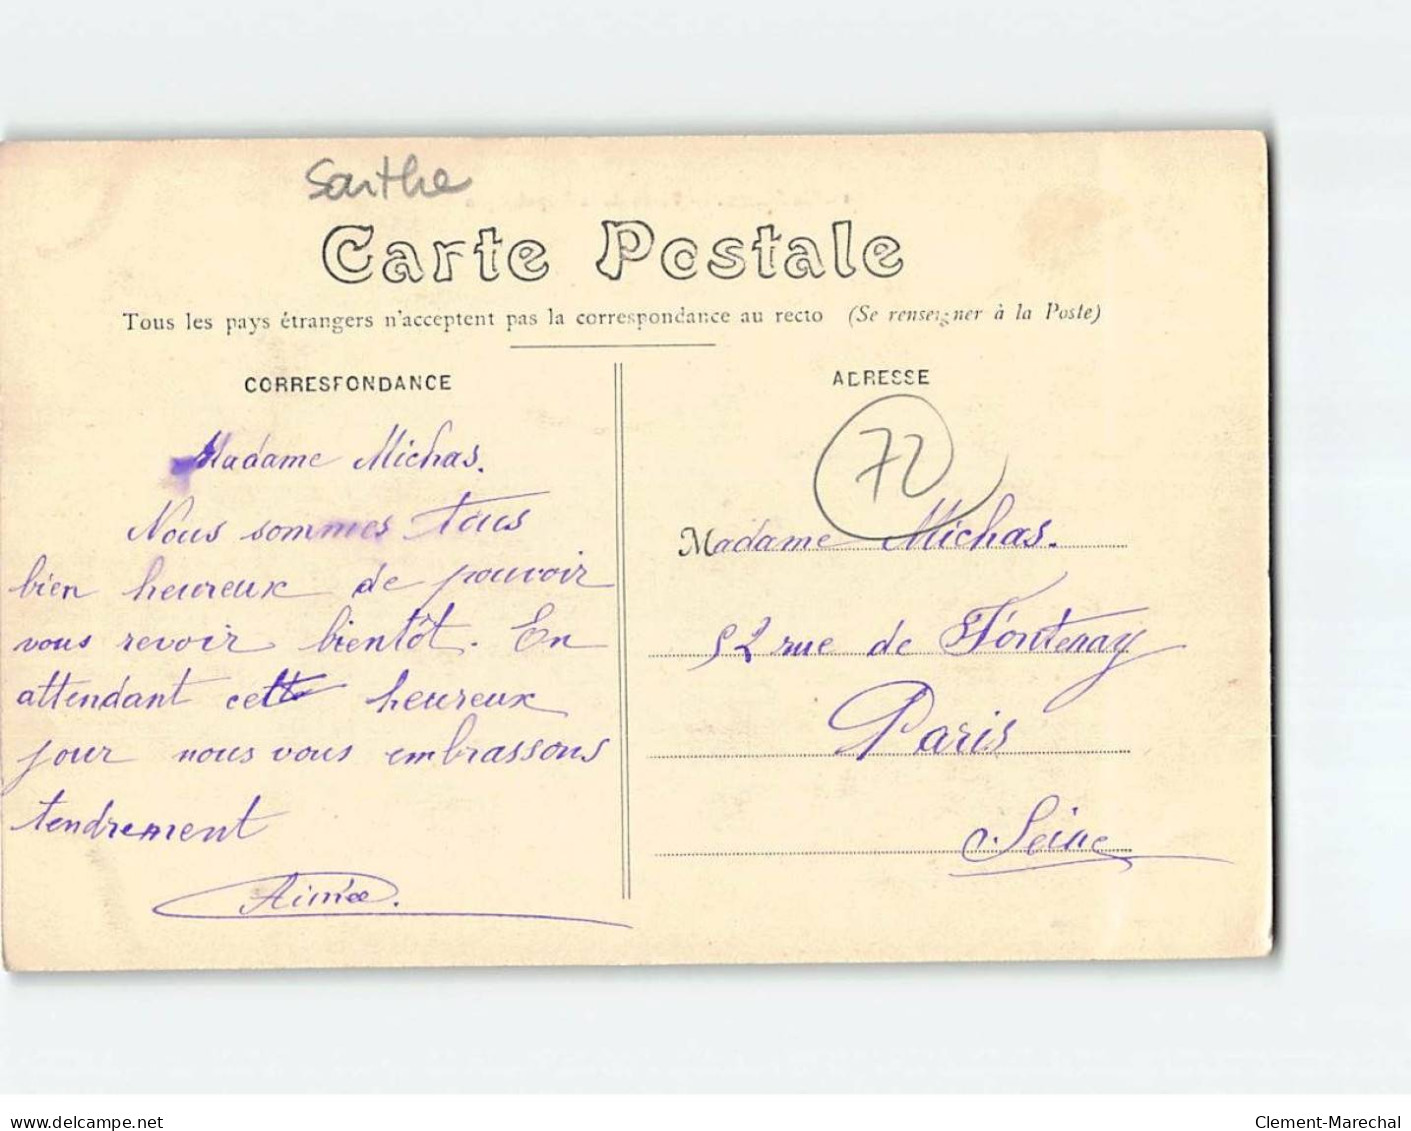 Sarthe
Carte Postale
Tous les pays étrangers n'acceptent pas la correspondance au recto (Se renseigner à la Poste)
CORRESPONDANCE
Madame Michas.
Nous sommes tous
bien heureux de pouvoir
vous revoir bientôt. En
attendant cette heureux
jour nous vous embrassons
tendrement
Aimée.
ADRESSE
72
Madame Michas.
52 rue de Fontenay
Paris
Seine
delcampe.com
Clement-Marechal